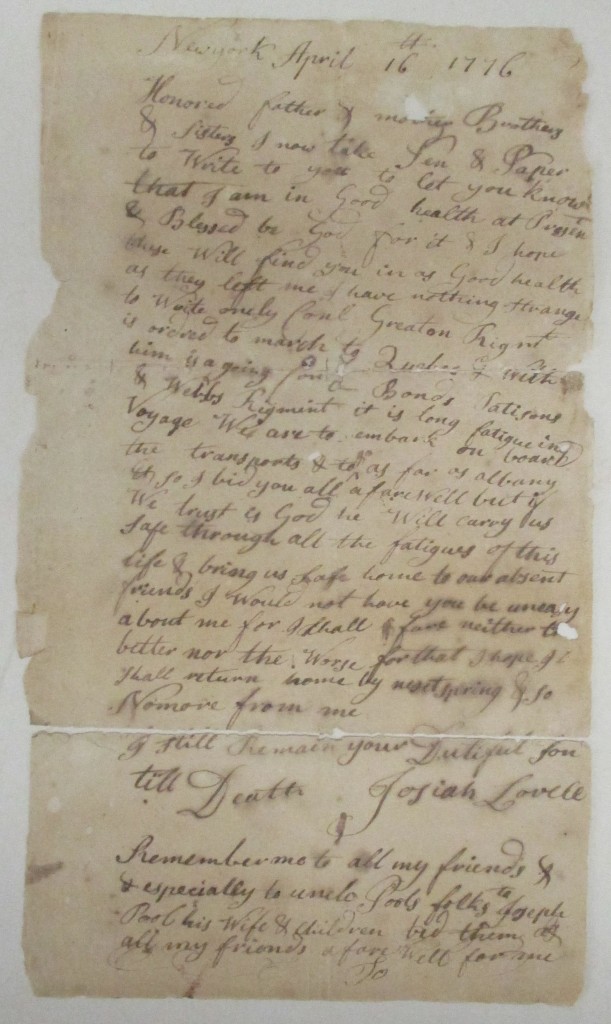 Newyork April 16th 1776
Honored father & mother Brothers
& Sisters I now take Pen & Paper
to Write to you to let you know
that I am in Good health at Presen
& Blessed be God for it & I hope
these Will find you in as Good health
as they left me I have nothing strange
to Write onely Conl Greaton Rigmt
is ordred to march to Quebec & with
him is a going Bonds Patisons
& Webbs Rigment it is long fatigueing
Voyage We are to embark on board
the transports & to go as far as albany
& so I bid you all a fare Well but if
We trust in God he Will carry us
safe through all the fatigues of this
life & bring us safe home to our absent
friends I Would not have you be uneasy
about me for I shall fare neither
better nor the Worse for that I hope I
shall return home by next spring & so
No more from me
I still Remain your Dutiful son
till Death Josiah Lovell
Remember me to all my friends &
& especially to uncle Pools folks to Joseph
Pool his Wife & children bid them &
all my friends a fare Well for me
To